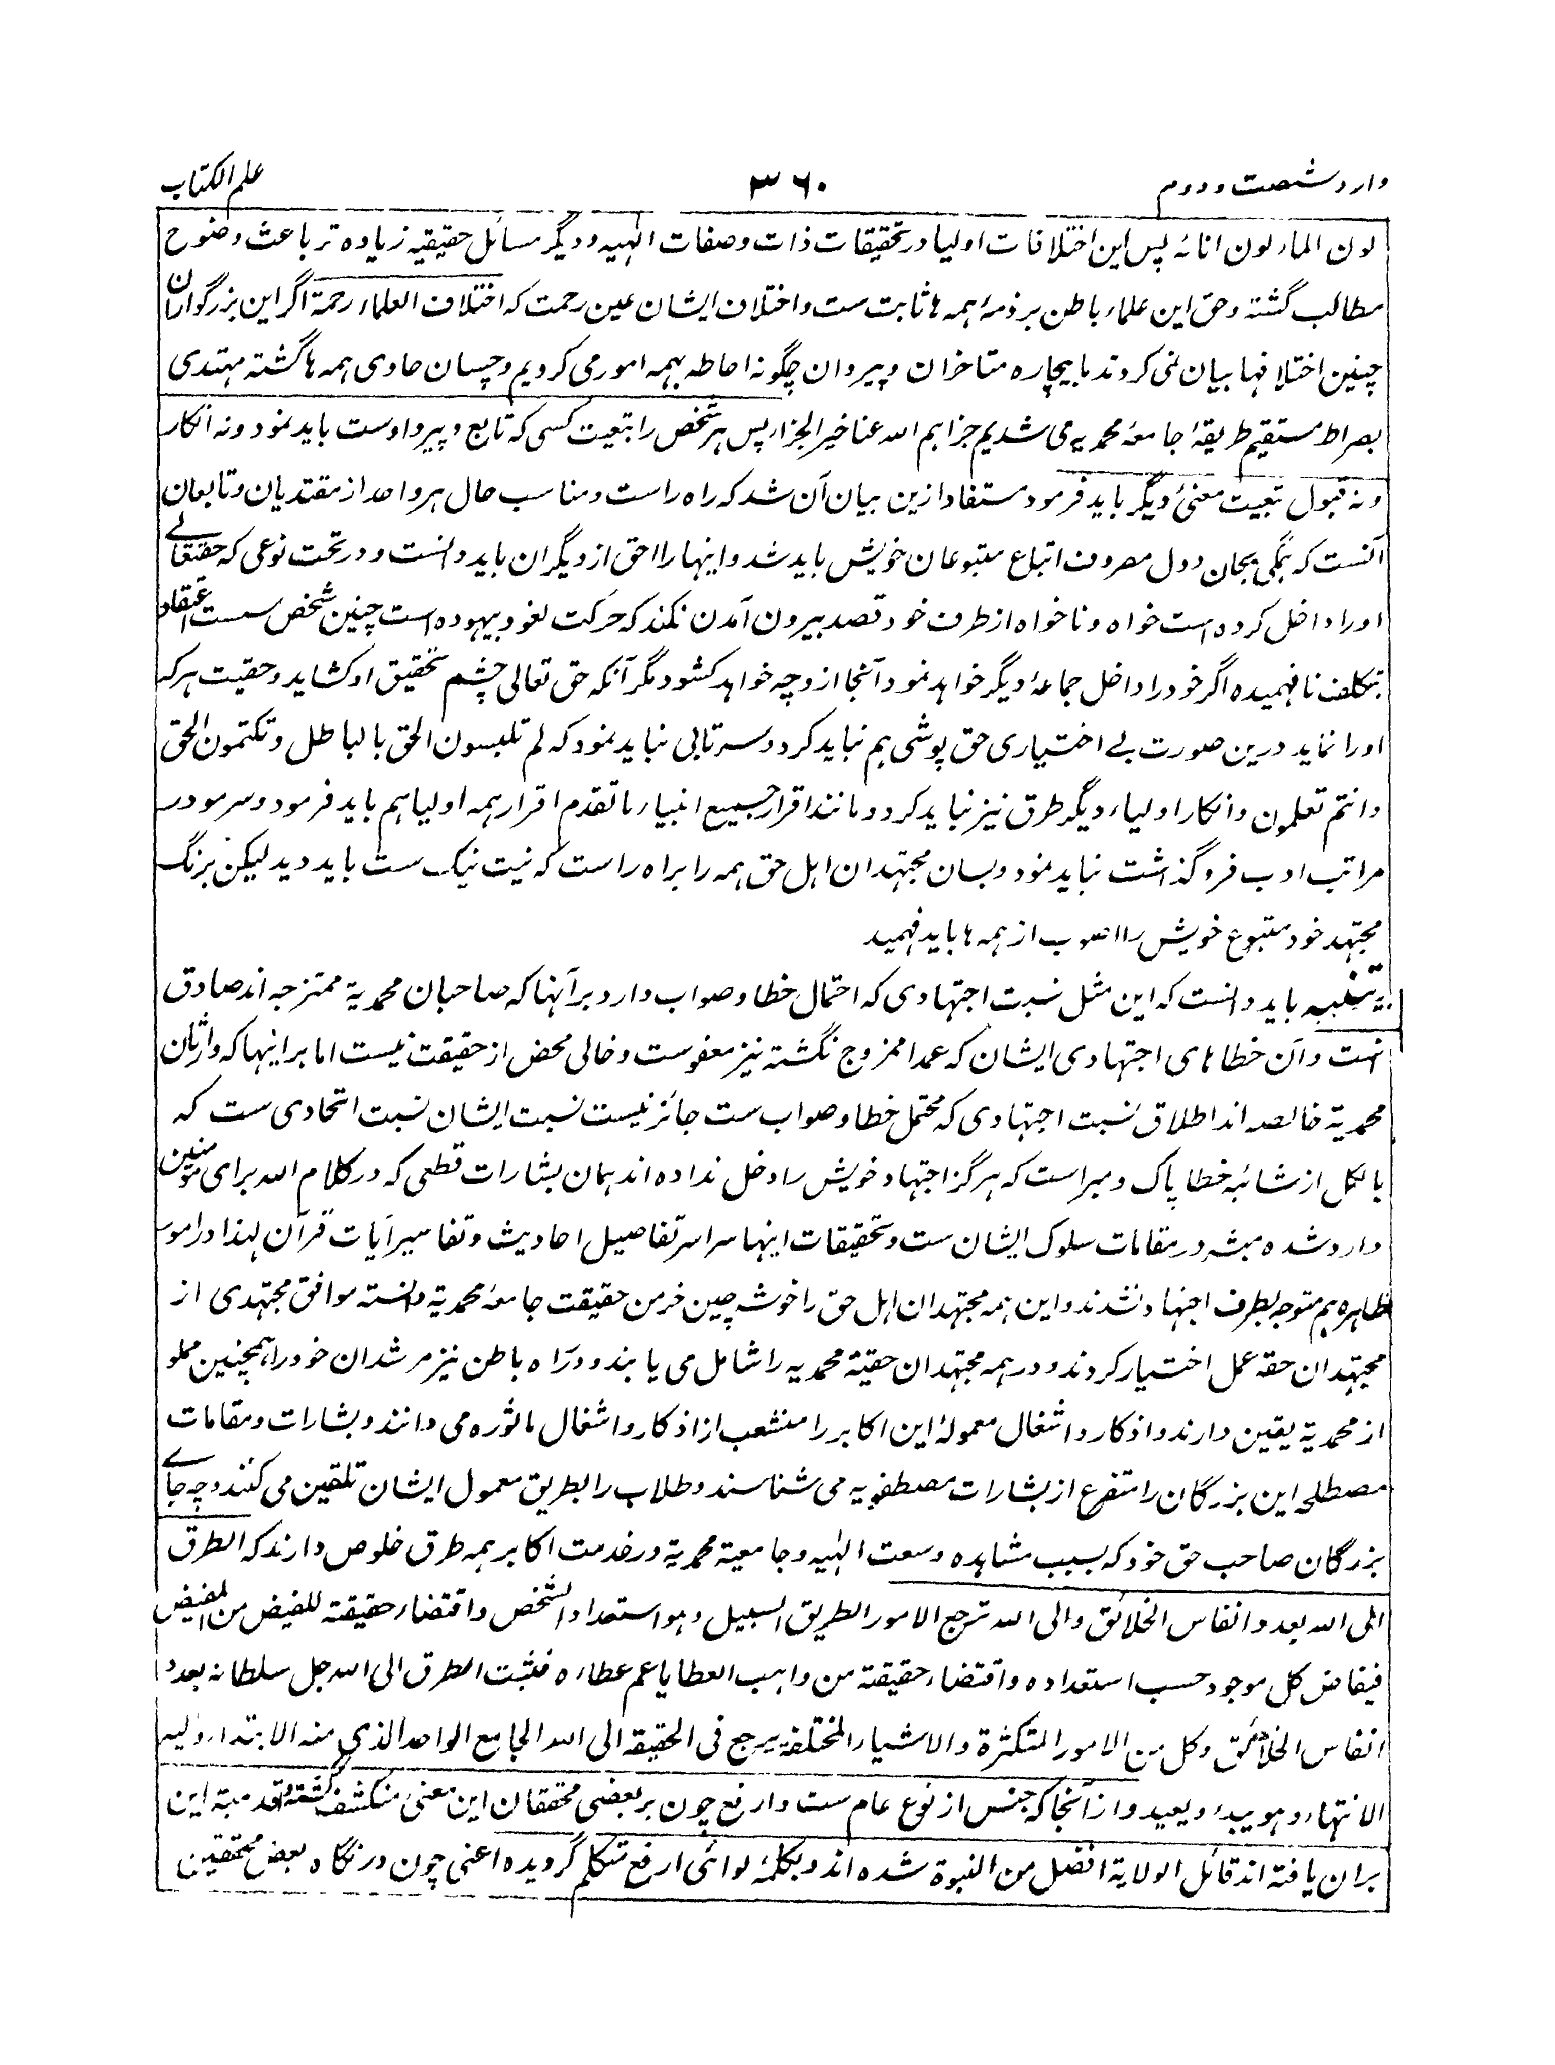 وارد شصت و دوم
۳۶۰
علم الکتاب
لون الماء لون انائه پس این اختلافات اولیا در تحقیقات ذات وصفات الٰهیه و دیگر مسائل حقیقیه زیاده تر باعث وضوح
مطالب گشته و حق این علماء باطن بر ذمهٔ همه ها ثابت ست و اختلاف ایشان عین رحمت که اختلاف العلماء رحمة اگر این بزرگواران
چنین اختلافها بیان نمی کردند ما بیچاره متاخران و پیروان چگونه احاطه بهمه امور می کردیم و چسان حاوی همه ها گشته مهتدی
بصراط مستقیم طریقهٔ جامعهٔ محمدیه می شدیم جزاهم الله عنا خیر الجزاء پس هر شخص را بتعیت کسی که تابع و پیرو اوست باید نمود و نه انکار
و نه قبول تبعیت معنیٔ دیگر باید فرمود مستفاد ازین بیان آن شد که راه راست و مناسب حال هر واحد از مقتدیان و تابعان
آنست که بگی بجان و دل مصروف اتباع متبوعان خویش باید شد و اینها را احق از دیگران باید دانست و در تحت نوعی که حقتعالے
او را داخل کرده است خواه و ناخواه از طرف خود قصد بیرون آمدن نکند که حرکت لغو و بیهوده است چنین شخص سست اعتقاد
بتکلف نافهمیده اگر خود را داخل جماعهٔ دیگر خواهد نمود آنجا از و چه خواهد کشود مگر آنکه حق تعالی چشم تحقیق او کشاید و حقیت هر که
او را نماید درین صورت بے اختیاری حق پوشی هم نباید کرد و سرتابی نباید نمود که لم تلبسون الحق بالباطل و تکتمون الحق
و انتم تعلمون و انکار اولیاء دیگر طرق نیز نباید کرد و مانند اقرار جمیع انبیاء ماتقدم اقرار همه اولیا هم باید فرمود و سر مو در
مراتب ادب فروگذاشت نباید نمود و بسان مجتهدان اهل حق همه را براه راست که نیت نیک ست باید دید لیکن برنگ
مجتهد خود متبوع خویش را اصوب از همه ها باید فهمید
تنبیه باید دانست که این مثل نسبت اجتهادی که احتمال خطا و صواب دارد بر آنها که صاحبان محمدیة ممتزجه اند صادق
ست و آن خطاهای اجتهادی ایشان که عمدا ممزوج نگشته نیز معفوست و خالی محض از حقیقت نیست اما بر اینها که وارثان
محمدیة خالصه اند اطلاق نسبت اجتهادی که محتمل خطا و صواب ست جائز نیست نسبت ایشان نسبت اتحادی ست که
بالکل از شائبهٔ خطا پاک و مبراست که هرگز اجتهاد خویش را دخل نداده اند همان بشارات قطعی که در کلام الله برای مومنین
وارد شده مبشر در مقامات سلوک ایشان ست و تحقیقات اینها سراسر تفاصیل احادیث و تفاسیر آیات قرآن لهذا در امور
ظاهره هم متوجه بطرف اجتهاد نشدند و این همه مجتهدان اهل حق را خوشه چین خرمن حقیقت جامعهٔ محمدیة دانسته موافق مجتهدی از
مجتهدان حقه عمل اختیار کردند و در همه مجتهدان حقیة محمدیه را شامل می یابند و در راه باطن نیز مرشدان خود را همچنین مملو
از محمدیة یقین دارند و اذکار و اشغال معمولهٔ این اکابر را منشعب از اذکار و اشغال ماثوره می دانند و بشارات و مقامات
مصطلحه این بزرگان را متفرع از بشارات مصطفویه می شناسند و طلاب را بطریق معمول ایشان تلقین می کنند و چه جاے
بزرگان صاحب حق خود که بسبب مشاهده وسعت الٰهیه و جامعیة محمدیة در خدمت اکابر همه طرق خلوص دارند که الطرق
الی الله بعدد انفاس الخلائق و الی الله ترجع الامور الطریق السبیل و هو استعداد الشخص و اقتضاء حقیقته للفیض من المفیض
فیفاض کل موجود حسب استعداده و اقتضاء حقیقته من واهب العطایا عم عطاءه فثبت الطرق الی الله جل سلطانه بعدد
انفاس الخلائق و کل من الامور المتکثرة و الاشیاء المختلفة یرجع فی الحقیقه الی الله الجامع الواحد الذی منه الابتداء و الیه
الانتهاء و هو یبدء و یعید و از آنجا که جنس از نوع عام ست و ارفع چون بر بعضی محققان این معنی منکشف گشته و قد این
بران یافته اند قائل الولایة افضل من النبوة شده اند و بکلمهٔ لوائی ارفع متکلم گردیده اعنی چون در نگاه بعض محققین